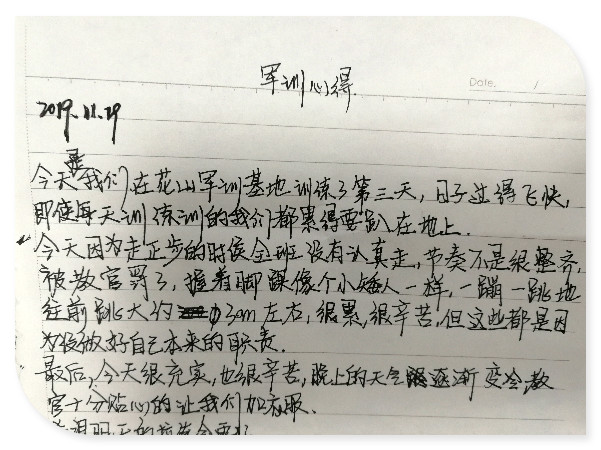 军训心得
Date. /
2019.11.29
今天是我们在花山军训基地训练了第三天,日子过得飞快,
即使每天训练训的我们都累得要趴在地上.
今天因为走正步的时候全班没有认真走,节奏不是很整齐,
被教官罚了,握着脚踝像个小矮人一样,一蹦一跳地
往前跳大约30m左右,很累,很辛苦,但这些都是因
为没做好自己本来的职责.
最后,今天很充实,也很辛苦,晚上的天气逐渐变冷教
官十分贴心的让我们加衣服.